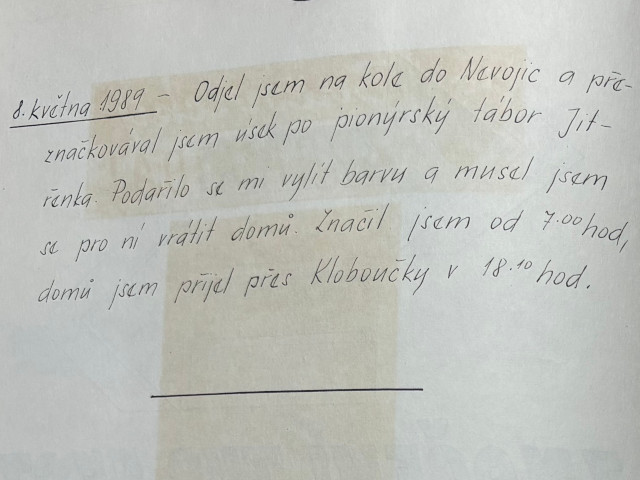 8. května 1989 – Odjel jsem na kole do Nevojic a pře-
značkovával jsem úsek po pionýrský tábor Jit-
řenka. Podařilo se mi vylít barvu a musel jsem
se pro ní vrátit domů. Značil jsem od 7.00 hod,
domů jsem přijel přes Kloboučky v 18.10 hod.